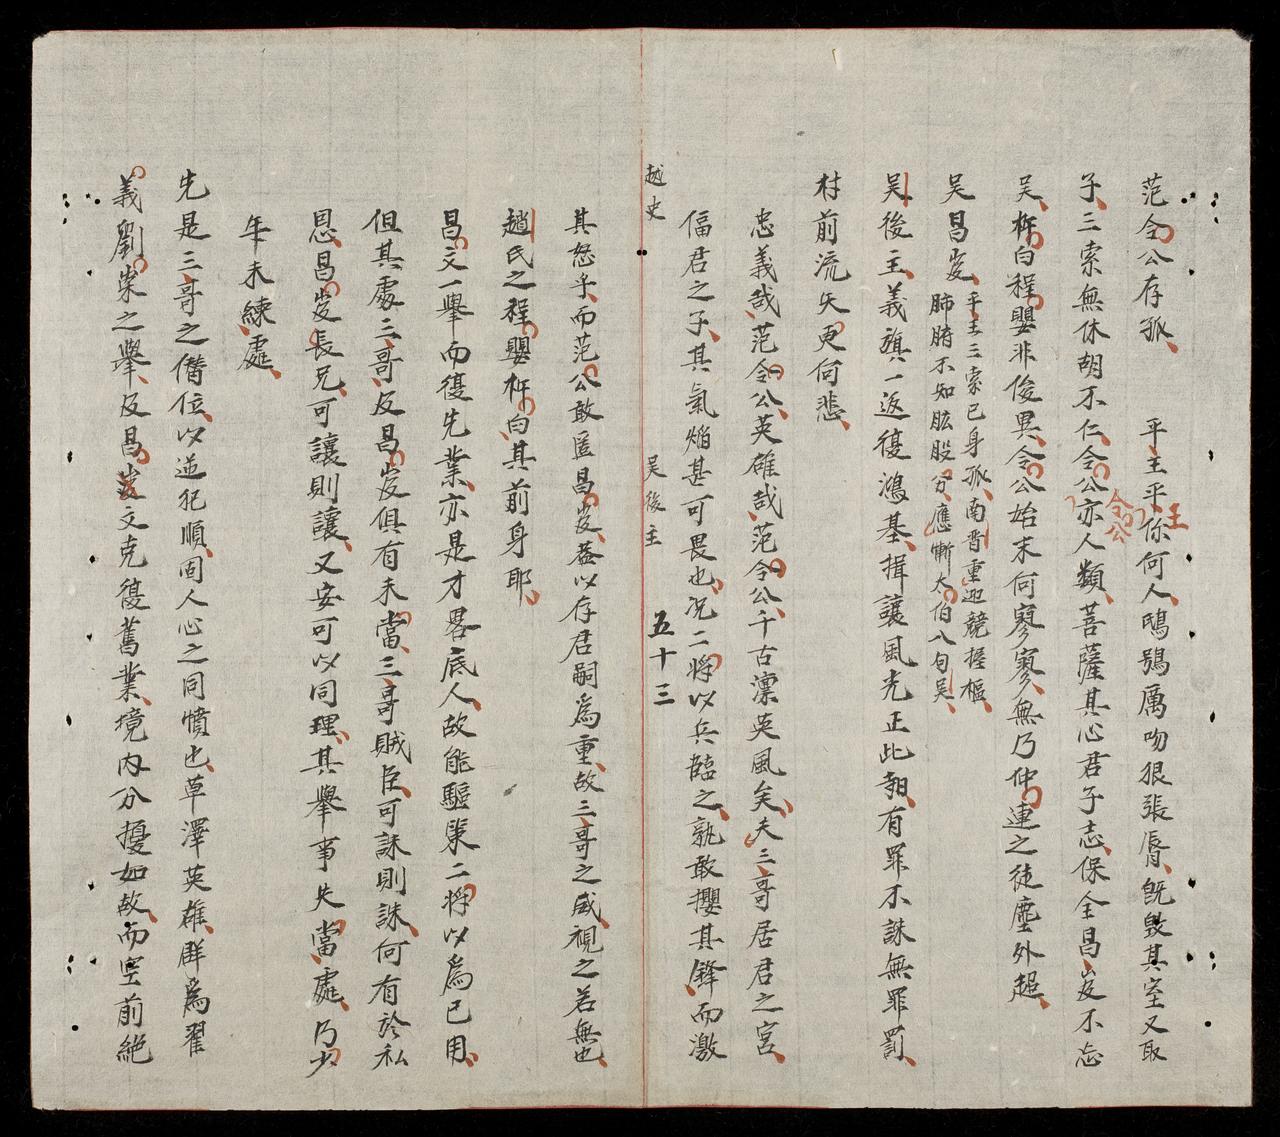 范令公存孤 平王平王你何人鴟鴞厲吻狠張唇既毀其室又取
子三索無休胡不仁令公令公亦人類菩薩其心君子志保全昌岌不忘
吳杵臼程嬰非俊異令公始末何寥寥無乃仲連之徒塵外超
吳昌岌平王三索已身孤南晋重迎競握樞
肺腑不知肱股分應慚太伯八句吳
吳後王義旗一返復鴻基揖讓風光正此朝有罪不誅無罪罰
村前流矢更何悲
忠義哉范令公英雄哉范令公千古凛英風矣夫三哥居君之宮
偪君之子其氣焰甚可畏也况二將以兵臨之孰敢攖其鋒而激
越史 吳後主 五十三
其怒乎而范公敢匿昌岌蓋以存君嗣爲重故三哥之威視之若無也
趙氏之程嬰杵臼其前身耶
昌文一舉而復先業亦是才畧底人故能驅策二將以爲已用
但其處三哥及昌岌俱有未當三哥賊臣可誅則誅何有於私
恩昌岌長兄可讓則讓又安可以同理其舉事失當處乃少
年未練處
先是三哥之僭位以逆犯順固人心之同憤也草澤英雄群爲翟
義劉崇之舉及昌岌文克復舊業境内分擾如故而空前絶